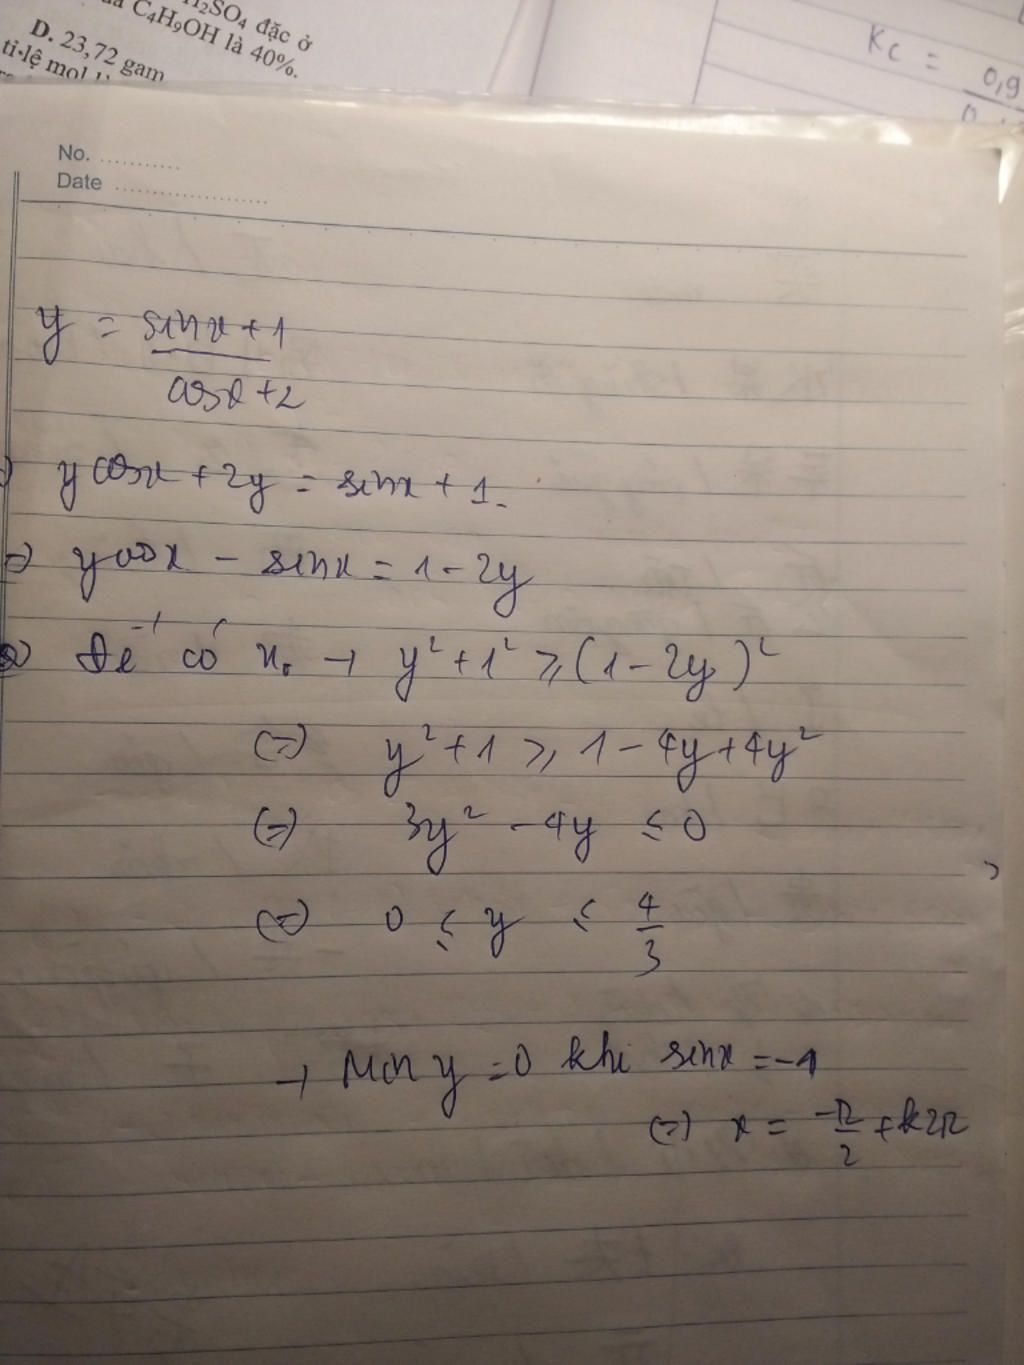 H₂SO₄ đặc ở
C₄H₉OH là 40%.
D. 23,72 gam
tỉ lệ mol
Kc = 0,9
No. ...........
Date ....................
y = (sinx + 1)/(cosx + 2)
y cosx + 2y = sinx + 1.
=> y cosx - sinx = 1 - 2y
Để có x. → y² + 1² ≥ (1 - 2y)²
(=) y² + 1 ≥ 1 - 4y + 4y²
(=) 3y² - 4y ≤ 0
(=) 0 ≤ y ≤ 4/3
→ Min y = 0 khi sinx = -1
(=) x = -π/2 + k2π